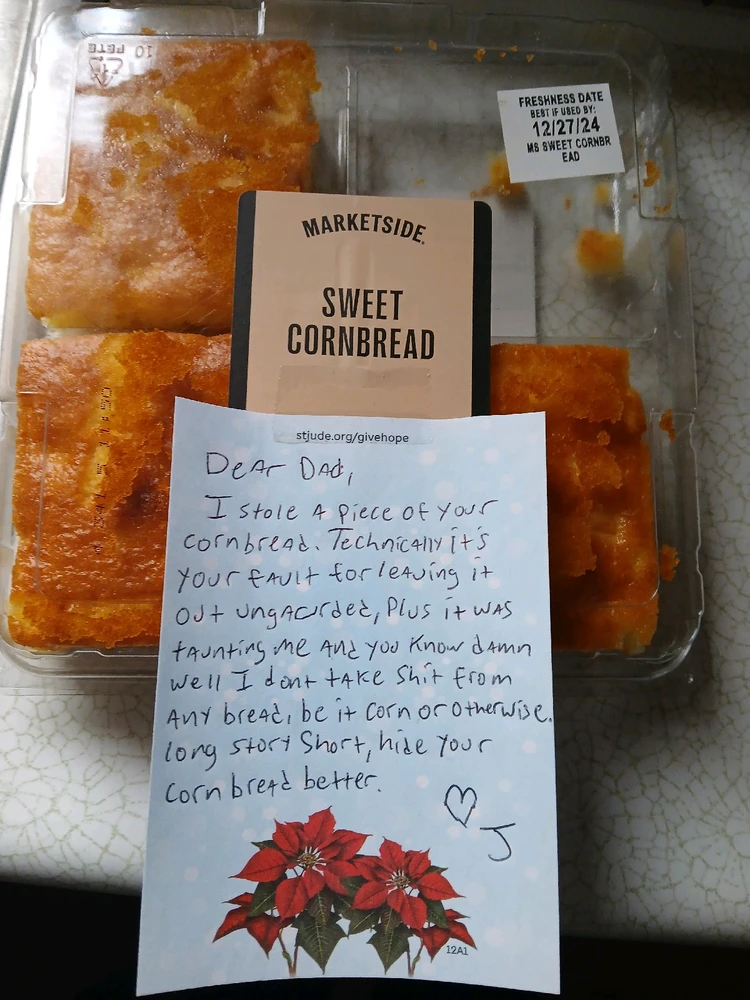 10 PETE
FRESHNESS DATE
BEST IF USED BY:
12/27/24
MS SWEET CORNBR
EAD
MARKETSIDE
SWEET
CORNBREAD
stjude.org/givehope
Dear Dad,
I stole a piece of your
cornbread. Technically it's
your fault for leaving it
out ungaurded, Plus it was
taunting me and you know damn
well I dont take shit from
any bread, be it corn or otherwise.
long story short, hide your
corn bread better.
♡ J
12A1